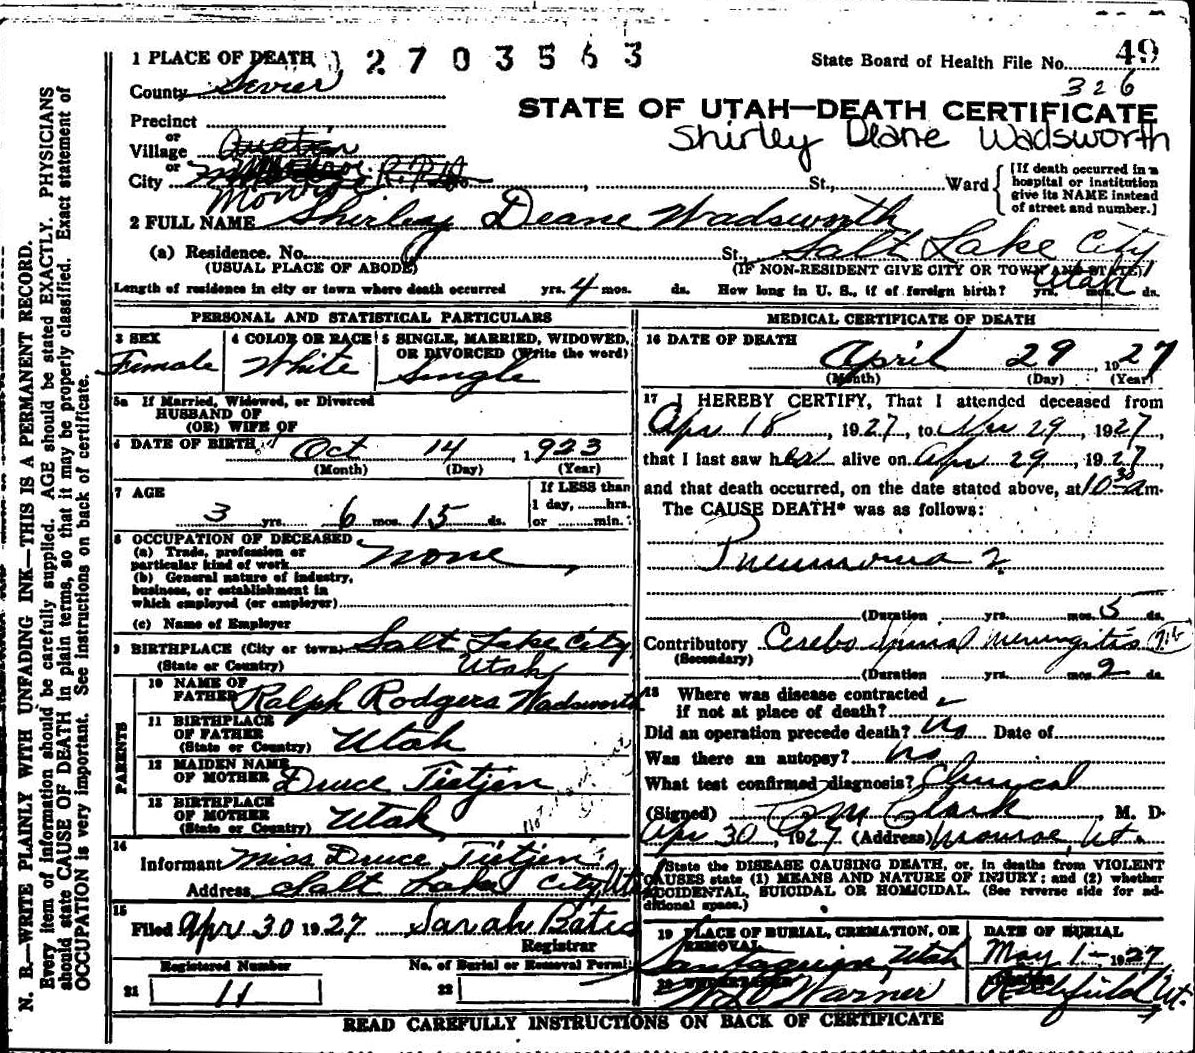 1 PLACE OF DEATH 2703563
State Board of Health File No. 49
326
County Sevier
STATE OF UTAH—DEATH CERTIFICATE
Shirley Deane Wadsworth
Precinct
or
Village Austin
or
City Monroe R.F.D. St., Ward
[If death occurred in a hospital or institution give its NAME instead of street and number.]
2 FULL NAME Shirley Deane Wadsworth
(a) Residence. No. St., Salt Lake City
(USUAL PLACE OF ABODE) (IF NON-RESIDENT GIVE CITY OR TOWN AND STATE) Utah
Length of residence in city or town where death occurred yrs. 4 mos. ds. How long in U. S., if of foreign birth? yrs. mos. ds.
PERSONAL AND STATISTICAL PARTICULARS
3 SEX Female
4 COLOR OR RACE White
5 SINGLE, MARRIED, WIDOWED, OR DIVORCED (Write the word) Single
5a If Married, Widowed, or Divorced
HUSBAND OF
(OR) WIFE OF
6 DATE OF BIRTH Oct 14, 1923
(Month) (Day) (Year)
7 AGE 3 yrs. 6 mos. 15 ds.
If LESS than
1 day, hrs.
or min.
8 OCCUPATION OF DECEASED
(a) Trade, profession or
particular kind of work none
(b) General nature of industry,
business, or establishment in
which employed (or employer)
(c) Name of Employer
9 BIRTHPLACE (City or town) Salt Lake City,
(State or Country) Utah
PARENTS
10 NAME OF FATHER Ralph Rodgers Wadsworth
11 BIRTHPLACE OF FATHER (State or Country) Utah
12 MAIDEN NAME OF MOTHER Druce Tietjen
13 BIRTHPLACE OF MOTHER (State or Country) Utah
14 Informant Miss Druce Tietjen
Address Salt Lake City, Utah
15 Filed Apr 30 1927 Sarah Bates
Registrar
Registered Number No. of Burial or Removal Permit
21 11 22
MEDICAL CERTIFICATE OF DEATH
16 DATE OF DEATH
April 29 1927
(Month) (Day) (Year)
17 I HEREBY CERTIFY, That I attended deceased from
Apr 18, 1927, to 29, 1927,
that I last saw her alive on Apr 29, 1927,
and that death occurred, on the date stated above, at 10:30 am.
The CAUSE DEATH* was as follows:
Pneumonia
(Duration yrs. mos. 5 ds.
Contributory Cerebo Spinal Meningitis
(Secondary)
(Duration yrs. mos. 2 ds.
18 Where was disease contracted
if not at place of death?
Did an operation precede death? No Date of
Was there an autopsy? No
What test confirmed diagnosis? Clinical
(Signed) Clark, M. D.
Apr 30, 1927 (Address) Monroe, Ut.
*State the DISEASE CAUSING DEATH, or, in deaths from VIOLENT
CAUSES state (1) MEANS AND NATURE OF INJURY; and (2) whether
ACCIDENTAL, SUICIDAL OR HOMICIDAL. (See reverse side for additional space.)
19 PLACE OF BURIAL, CREMATION, OR REMOVAL Santaquin, Utah
DATE OF BURIAL May 1 - 1927
20 UNDERTAKER Warner
Richfield Ut.
READ CAREFULLY INSTRUCTIONS ON BACK OF CERTIFICATE
N. B.—WRITE PLAINLY WITH UNFADING INK—THIS IS A PERMANENT RECORD.
Every item of information should be carefully supplied. AGE should be stated EXACTLY. PHYSICIANS
should state CAUSE OF DEATH in plain terms, so that it may be properly classified. Exact statement of
OCCUPATION is very important. See instructions on back of certificate.